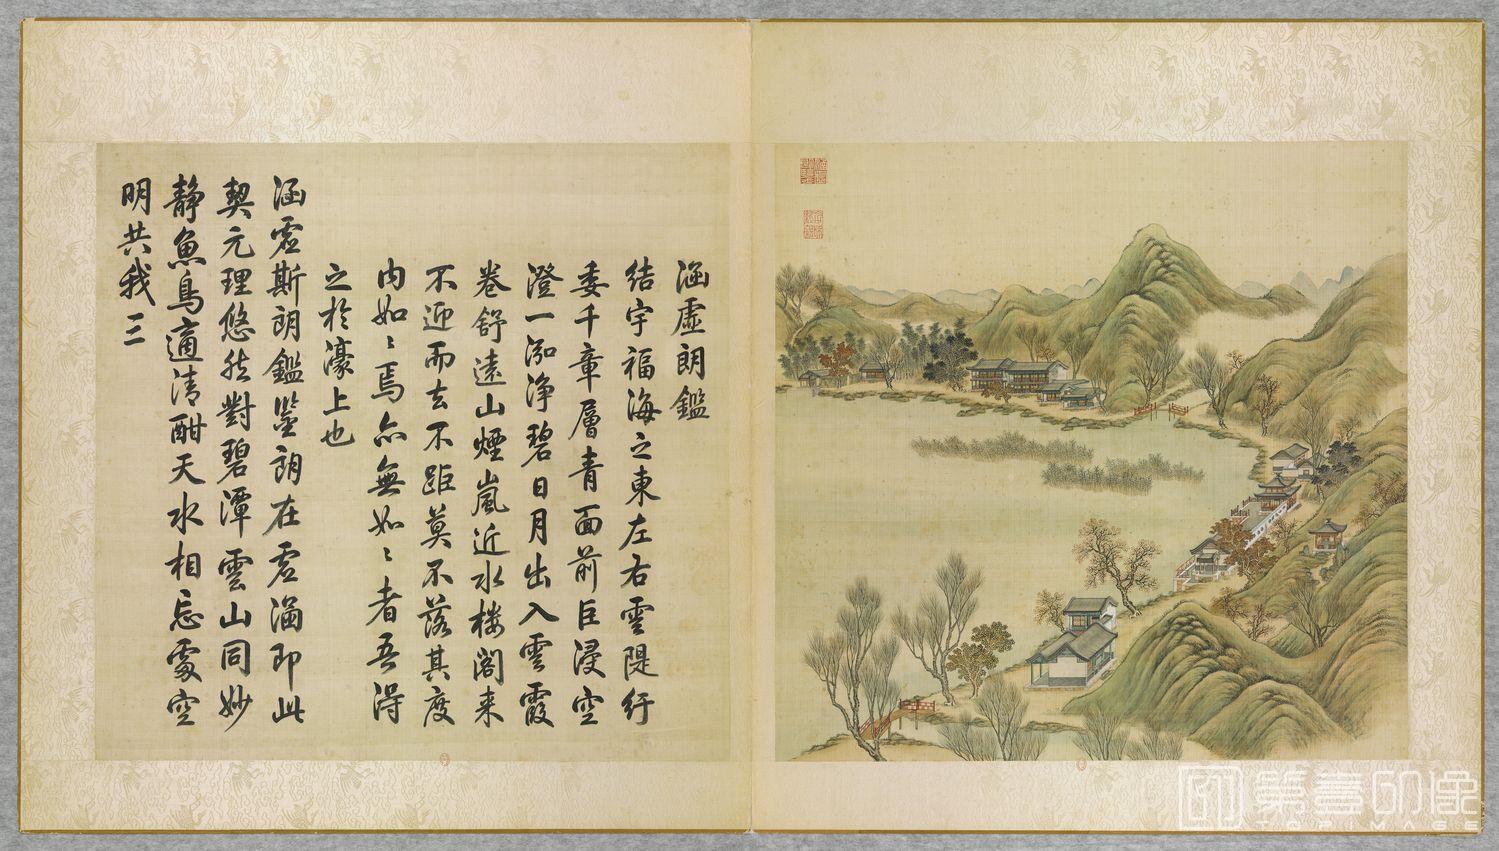 涵虛朗鑑
結宇福海之東左右雲隄紆
委千章層青面前巨浸空
澄一泓淨碧日月出入雲霞
卷舒遠山煙嵐近水楼阁来
不迎而去不距莫不落其度
内如〻焉亦無如〻者吾得
之於濠上也
涵虛斯朗鑑鑒朗在虛涵即此
契元理悠然對碧潭雲山同妙
静魚鳥適清酣天水相忘處空
明共我三
第壹印像
TOPIMAGE